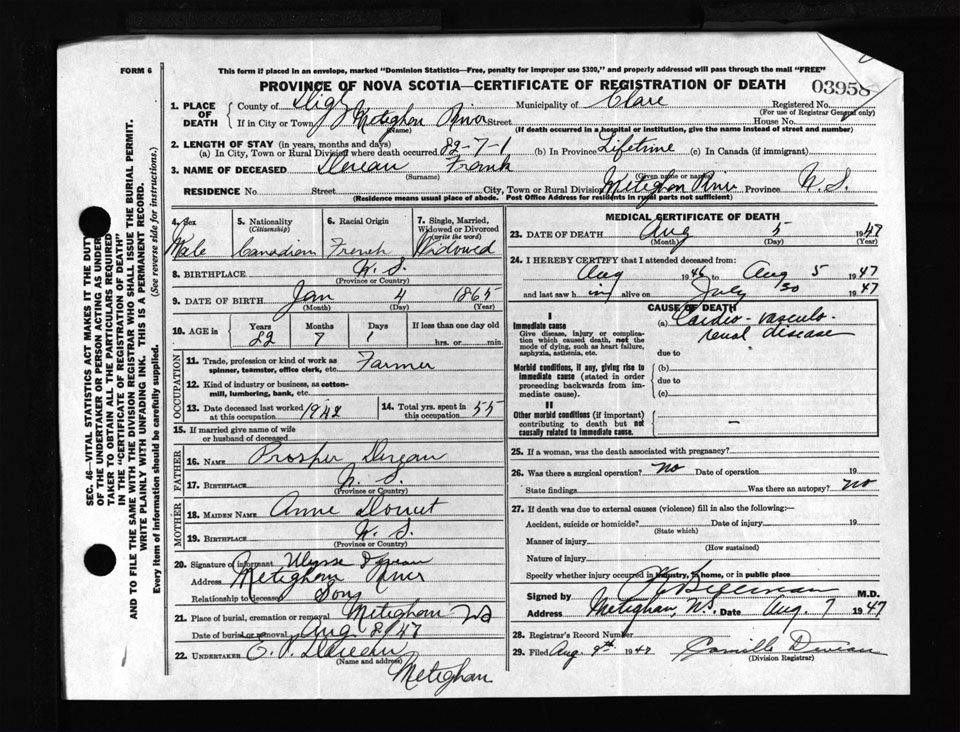 FORM 6
This form if placed in an envelope, marked "Dominion Statistics—Free, penalty for improper use $300," and properly addressed will pass through the mail "FREE"
PROVINCE OF NOVA SCOTIA—CERTIFICATE OF REGISTRATION OF DEATH
03958
1. PLACE OF DEATH County of Digby Municipality of Clare Registered No.
(For use of Registrar General only)
If in City or Town Meteghan River Street House No.
(Name) (If death occurred in a hospital or institution, give the name instead of street and number)
2. LENGTH OF STAY (in years, months and days)
(a) In City, Town or Rural Division where death occurred 82-7-1 (b) In Province Lifetime (c) In Canada (if immigrant)
3. NAME OF DECEASED Deveau Frank
(Surname) (Given name or names)
RESIDENCE No. Street City, Town or Rural Division Meteghan River Province N.S.
(Residence means usual place of abode. Post Office Address for residents in rural parts not sufficient)
4. Sex 5. Nationality (Citizenship) 6. Racial Origin 7. Single, Married, Widowed or Divorced (write the word)
Male Canadian French Widowed
8. BIRTHPLACE N.S.
(Province or Country)
9. DATE OF BIRTH Jan 4 1865
(Month) (Day) (Year)
10. AGE in Years Months Days If less than one day old
82 7 1 hrs. or min.
OCCUPATION
11. Trade, profession or kind of work as spinner, teamster, office clerk, etc. Farmer
12. Kind of industry or business, as cotton-mill, lumbering, bank, etc.
13. Date deceased last worked at this occupation 1942 14. Total yrs. spent in this occupation 55
15. If married give name of wife or husband of deceased
FATHER
16. Name Prosper Deveau
17. Birthplace N.S.
(Province or Country)
MOTHER
18. Maiden Name Anne Doucet
19. Birthplace N.S.
(Province or Country)
20. Signature of informant Ulysse Deveau
Address Meteghan River
Relationship to deceased Son
21. Place of burial, cremation or removal Meteghan
Date of burial or removal Aug 8 1947
22. UNDERTAKER
(Name and address)
Meteghan
MEDICAL CERTIFICATE OF DEATH
23. DATE OF DEATH Aug 5 1947
(Month) (Day) (Year)
24. I HEREBY CERTIFY that I attended deceased from:
Aug 1946 to Aug 5 1947
and last saw him alive on July 30 1947
CAUSE OF DEATH
I
Immediate cause
Give disease, injury or complication which caused death, not the mode of dying, such as heart failure, asphyxia, asthenia, etc.
(a) Cardio-vasculo-
renal disease
due to
Morbid conditions, if any, giving rise to immediate cause (stated in order proceeding backwards from immediate cause).
(b)
due to
(c)
II
Other morbid conditions (if important) contributing to death but not causally related to immediate cause. —
25. If a woman, was the death associated with pregnancy?
26. Was there a surgical operation? No Date of operation 19
State findings Was there an autopsy? No
27. If death was due to external causes (violence) fill in also the following:—
Accident, suicide or homicide? Date of injury 19
(State which)
Manner of injury
(How sustained)
Nature of injury
Specify whether injury occurred in industry, in home, or in public place
Signed by M.D.
Address Meteghan, N.S. Date Aug. 7 1947
28. Registrar's Record Number
29. Filed Aug. 9th 1947 Camille Deveau
(Division Registrar)
SEC. 46—VITAL STATISTICS ACT MAKES IT THE DUTY OF THE UNDERTAKER OR PERSON ACTING AS UNDERTAKER TO OBTAIN ALL THE PARTICULARS REQUIRED IN THE "CERTIFICATE OF REGISTRATION OF DEATH" AND TO FILE THE SAME WITH THE DIVISION REGISTRAR WHO SHALL ISSUE THE BURIAL PERMIT.
WRITE PLAINLY WITH UNFADING INK. THIS IS A PERMANENT RECORD.
Every item of information should be carefully supplied. (See reverse side for instructions.)